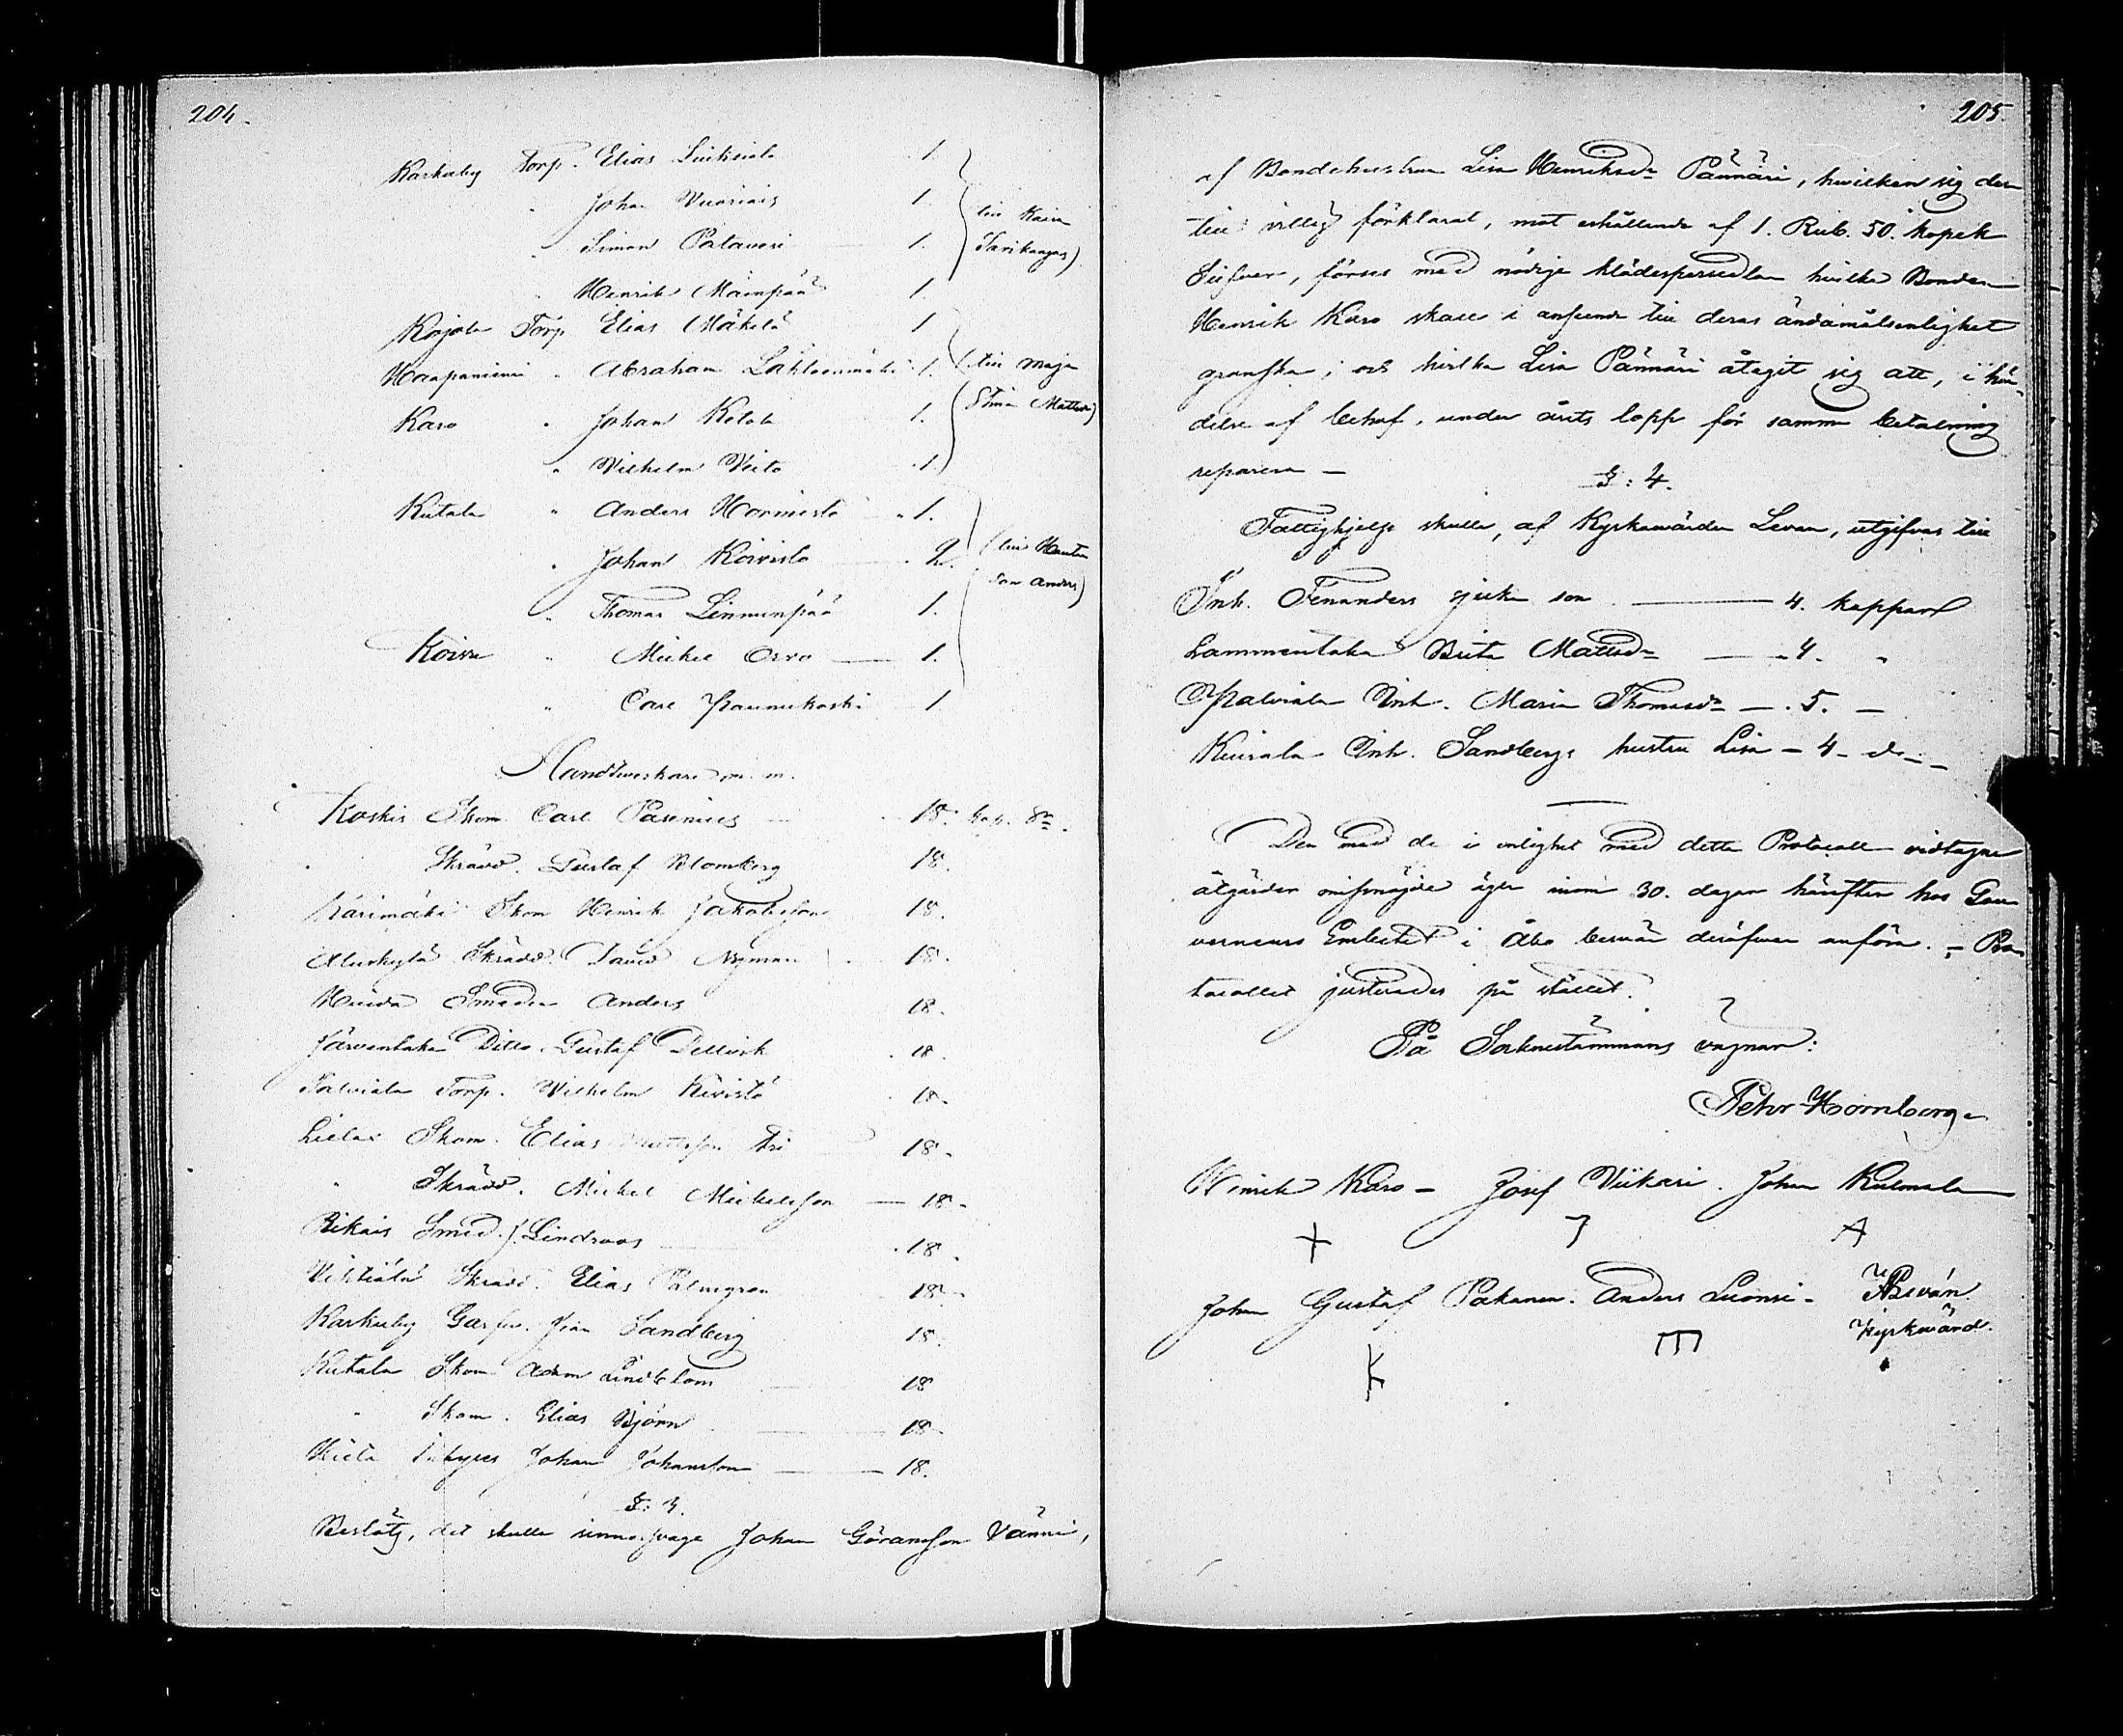 204.
Karkuby Torp. Elias Suikiala 1.
" Johan Vuoriais 1.
" Simon Patavuori 1.
" Henrik Mäenpää 1.
(till Kaisa
Savikangas)
Kojola Torp. Elias Mäkelä 1
Haapaniemi " Abraham Lähteenmäki 1.
Karo " Johan Ketola 1.
" Vilhelm Veito 1.
(till Maja
Stina Mattsd)
Kutala " Anders Hornisto 1.
" Johan Koivisto 2.
" Thomas Linnunpää 1.
Koivu " Mickel Orro 1.
" Carl Paunukoski 1
(till
son Anders)
Handtverkare m. m.
Koskis Skom Carl Pasenius 18. kop. Sr.
" Skrädd. Gustaf Blomberg 18.
Kärimäki Skom Henrik Jakobsson 18.
Aluskylä Skrädd. David Nyman 18.
Huida Smeden Anders 18.
Järventaka Ditto Gustaf Dellvik 18.
Salviala Torp. Wilhelm Kivistö 18.
Liela Skom. Elias Mattsson 18.
" Skrädd. Mickel Mickelsson 18.
Rikais Smed. J. Lindroos 18.
Vihtiälä Skrädd. Elias Palmgren 18.
Karkuby Garfv. Joan Sandberg 18.
Kutala Skom Adam Lindblom 18
" Skom. Elias Björn 18.
Hiela Inhyses Johan Johansson 18.
§: 3.
Beslöts, det skulle sinnessvage Johan Göransson Vänni,
205.
af Bondehustrun Lisa Henriksdr Pännäri, hwilken sig der
till villig förklarat, mot erhållande af 1. Rub. 50. kopek
Silfver, förses med nödige klädespersedlar hvilka Bonden
Henrik Karo skall i anseende till deras ändamålsenlighet
granska; och hvilka Lisa Pännäri åtagit sig att, i hän-
delse af behof, under årets lopp för samma betalning
reparera —
§: 4.
Fattighjelp skulle, af Kyrkovärden Levan, utgifvas till
Inh. Fenanders sjuka son 4. kappar
Lammentaka Brita Mattsdr 4. "
Palviala Inh. Maria Thomasdr — 5. —
Kiurala Inh. Sandbergs hustru Lisa — 4 — d:o —
Den med de i enlighet med detta Protocoll vidtagne
åtgärder missnöjde äger inom 30. dagar härefter hos Gou-
verneurs Embetet i Åbo besvär deröfver anföra. — Pro-
tocollet justerades på stället.
På Sockenstämmans vägnar:
Petter Hornborg.
Henrik Karo — Josef Viikari. Johan Kulmala
Johan Gustaf Pakanen. Anders Luonsi —
Kyrkvärd.